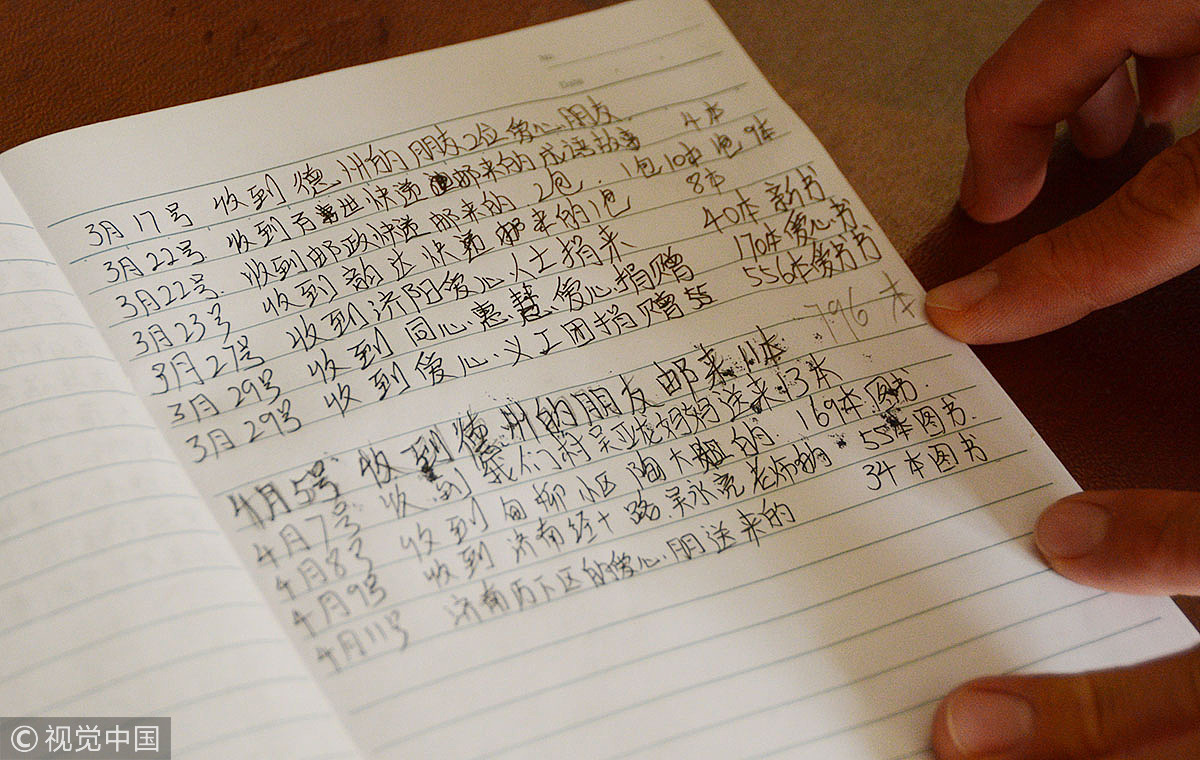 No
Date
3月17号 收到德州的朋友2位爱心朋友
3月22号 收到百世快递邮来的成语故事 4本
3月22号 收到邮政快递邮来的 2包 1包10本 1包9本
3月23号 收到韵达快递邮来的1包 8本
3月27号 收到济阳爱心人士捐来 40本新书
3月29号 收到同心惠慧爱心捐赠 170本爱心书
3月29号 收到爱心义工团捐赠55 556本爱书书
796本
4月5号 收到德州的朋友邮来11本
4月7号 收到我们将吴亚龙妈妈送来13本
4月8号 收到甸柳小区陶大姐的 169本图书
4月9号 收到济南经十路吴永亮老师捐 55本图书
4月11号 济南历下区的爱心朋送来的 34本图书
©视觉中国